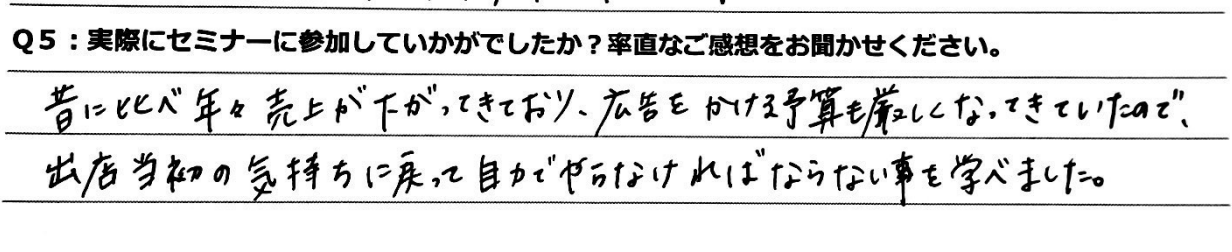 Q5：実際にセミナーに参加していかがでしたか？率直なご感想をお聞かせください。
昔に比べ年々売上が下がってきており、広告をかける予算も厳しくなってきていたので、
出店当初の気持ちに戻って自力でやらなければならない事を学べました。